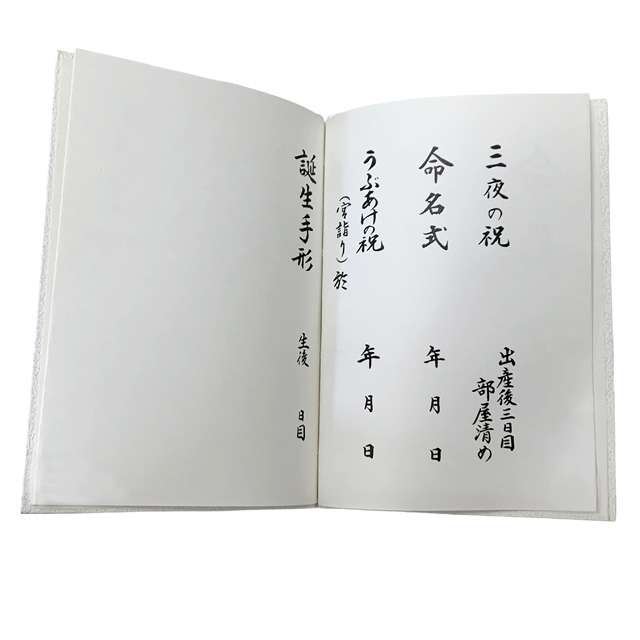 三夜の祝
出産後三日目
部屋清め
命名式
年 月 日
うぶあけの祝
(宮詣り)於
年 月 日
誕生手形
生後 日目